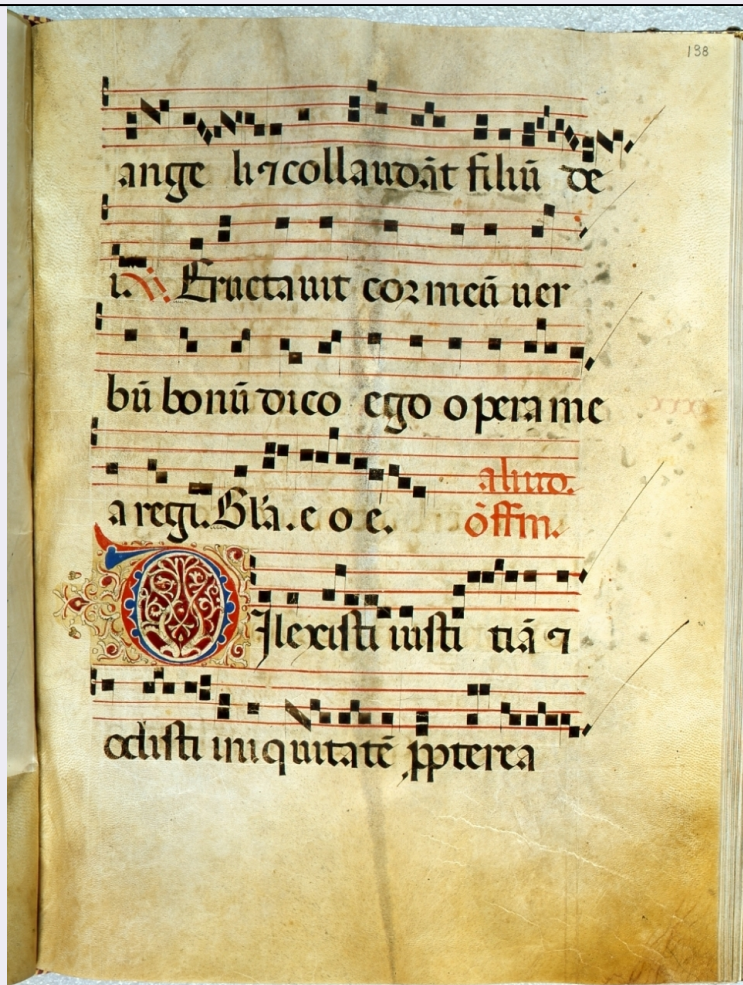 198
ange li ⁊ collaudāt filiū de
i. V. Eructauit cor meū uer
bū bonū dico ego opera me
a regi. Gl'a. e o e. aliud.
offm.
Dilexisti iusti tiā ⁊
odisti iniquitatē ꝓpterea